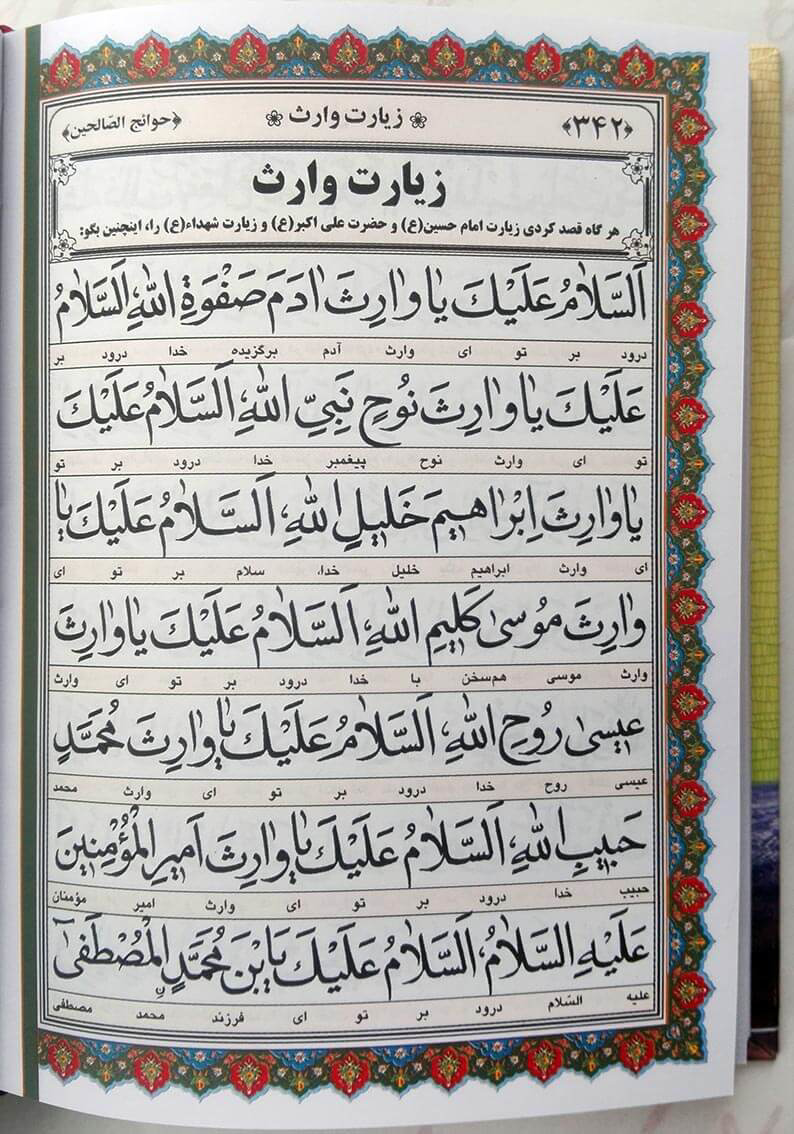 ﴿۳۴۲﴾ زیارت وارث ﴿حوائج الصّالحین﴾
زیارت وارث
هر گاه قصد کردی زیارت امام حسین(ع) و حضرت علی اکبر(ع) و زیارت شهداء(ع) را، اینچنین بگو:
اَلسَّلامُ عَلَيْكَ يا وارِثَ ادَمَ صَفْوَةِ اللهِ، اَلسَّلامُ
درود بر تو ای وارث آدم برگزیده خدا درود بر
عَلَيْكَ يا وارِثَ نوُحٍ نَبِيِّ اللهِ، اَلسَّلامُ عَلَيْكَ
تو ای وارث نوح پیغمبر خدا درود بر تو
يا وارِثَ اِبْراهيمَ خَليلِ اللهِ، اَلسَّلامُ عَلَيْكَ يا
ای وارث ابراهیم خلیل خدا، سلام بر تو ای
وارِثَ موُسى كَليمِ اللهِ، اَلسَّلامُ عَلَيْكَ يا وارِثَ
وارث موسی هم‌سخن با خدا درود بر تو ای وارث
عيسى رُوحِ اللهِ، اَلسَّلامُ عَلَيْكَ يا وارِثَ مُحَمَّدٍ
عیسی روح خدا درود بر تو ای وارث محمد
حَبيبِ اللهِ، اَلسَّلامُ عَلَيْكَ يا وارِثَ اَميرِ الْمُؤْمِنينَ
حبیب خدا درود بر تو ای وارث امیر مؤمنان
عَلَيْهِ السَّلامُ، اَلسَّلامُ عَلَيْكَ يَا بْنَ مُحَمَّدٍ الْمُصْطَفىٰ
علیه السّلام درود بر تو ای فرزند محمد مصطفی